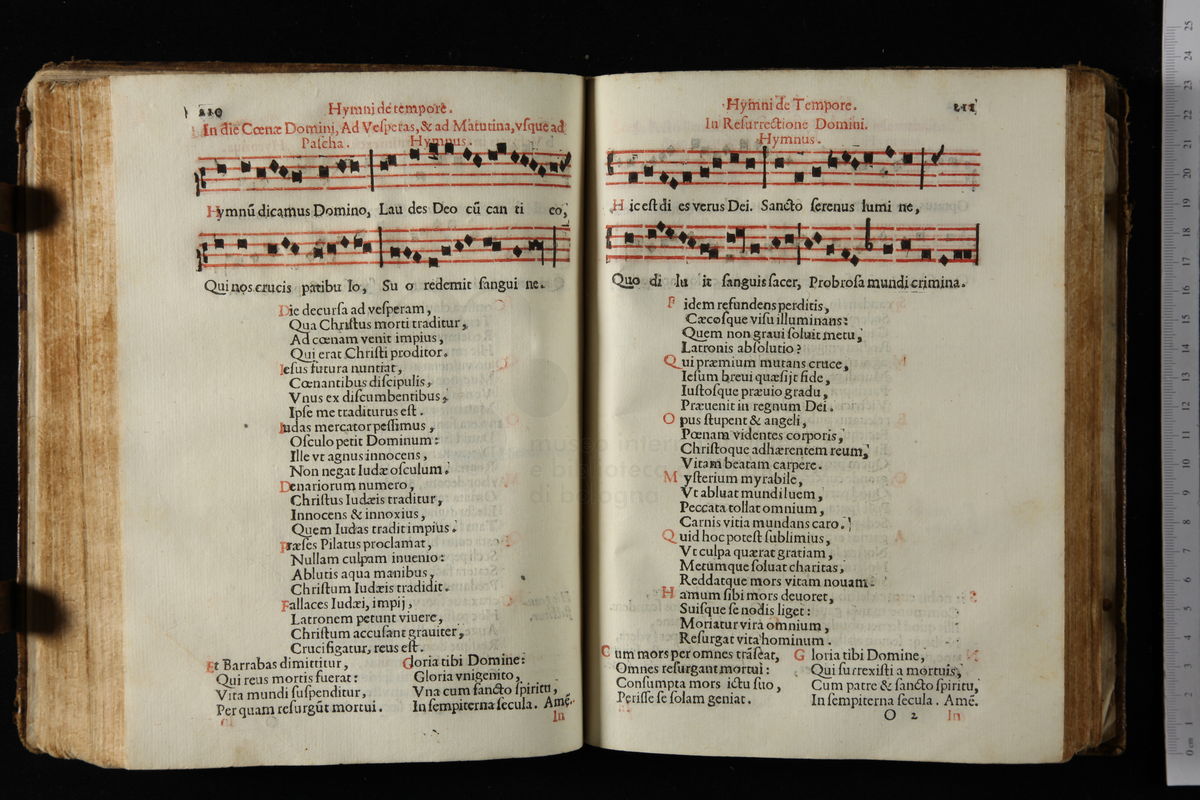 210
Hymni de tempore.
In die Cœnæ Domini, Ad Vesperas, & ad Matutina, vsque ad
Pascha. Hymnus.
Hymnũ dicamus Domino, Lau des Deo cũ can ti co,
Qui nos crucis patibu lo, Su o redemit sangui ne.
Die decursa ad vesperam,
Qua Christus morti traditur,
Ad cœnam venit impius,
Qui erat Christi proditor.
Iesus futura nuntiat,
Cœnantibus discipulis,
Vnus ex discumbentibus,
Ipse me traditurus est.
Iudas mercator pessimus,
Osculo petit Dominum:
Ille vt agnus innocens,
Non negat Iudæ osculum.
Denariorum numero,
Christus Iudæis traditur,
Innocens & innoxius,
Quem Iudas tradit impius.
Præses Pilatus proclamat,
Nullam culpam inuenio:
Ablutis aqua manibus,
Christum Iudæis tradidit.
Fallaces Iudæi, impij,
Latronem petunt viuere,
Christum accusant grauiter,
Crucifigatur, reus est.
Et Barrabas dimittitur,
Qui reus mortis fuerat:
Vita mundi suspenditur,
Per quam resurgũt mortui.
Gloria tibi Domine:
Gloria vnigenito,
Vna cum sancto spiritu,
In sempiterna secula. Amẽ.
In
Hymni de Tempore.
In Resurrectione Domini.
Hymnus.
Hic est di es verus Dei. Sancto serenus lumi ne,
Quo di lu it sanguis sacer, Probrosa mundi crimina.
Fidem refundens perditis,
Cæcosque visu illuminans:
Quem non graui soluit metu,
Latronis absolutio?
Qui præmium mutans cruce,
Iesum breui quæsijt fide,
Iustosque præuio gradu,
Præuenit in regnum Dei.
Opus stupent & angeli,
Pœnam videntes corporis,
Christoque adhærentem reum,
Vitam beatam carpere.
Mysterium myrabile,
Vt abluat mundi luem,
Peccata tollat omnium,
Carnis vitia mundans caro.
Quid hoc potest sublimius,
Vt culpa quærat gratiam,
Metumque soluat charitas,
Reddatque mors vitam nouam.
Hamum sibi mors deuoret,
Suisque se nodis liget:
Moriatur vita omnium,
Resurgat vita hominum.
Cum mors per omnes trãseat,
Omnes resurgant mortui:
Consumpta mors ictu suo,
Perisse se solam geniat.
Gloria tibi Domine,
Qui surrexisti a mortuis,
Cum patre & sancto spiritu,
In sempiterna secula. Amẽ.
O 2 In